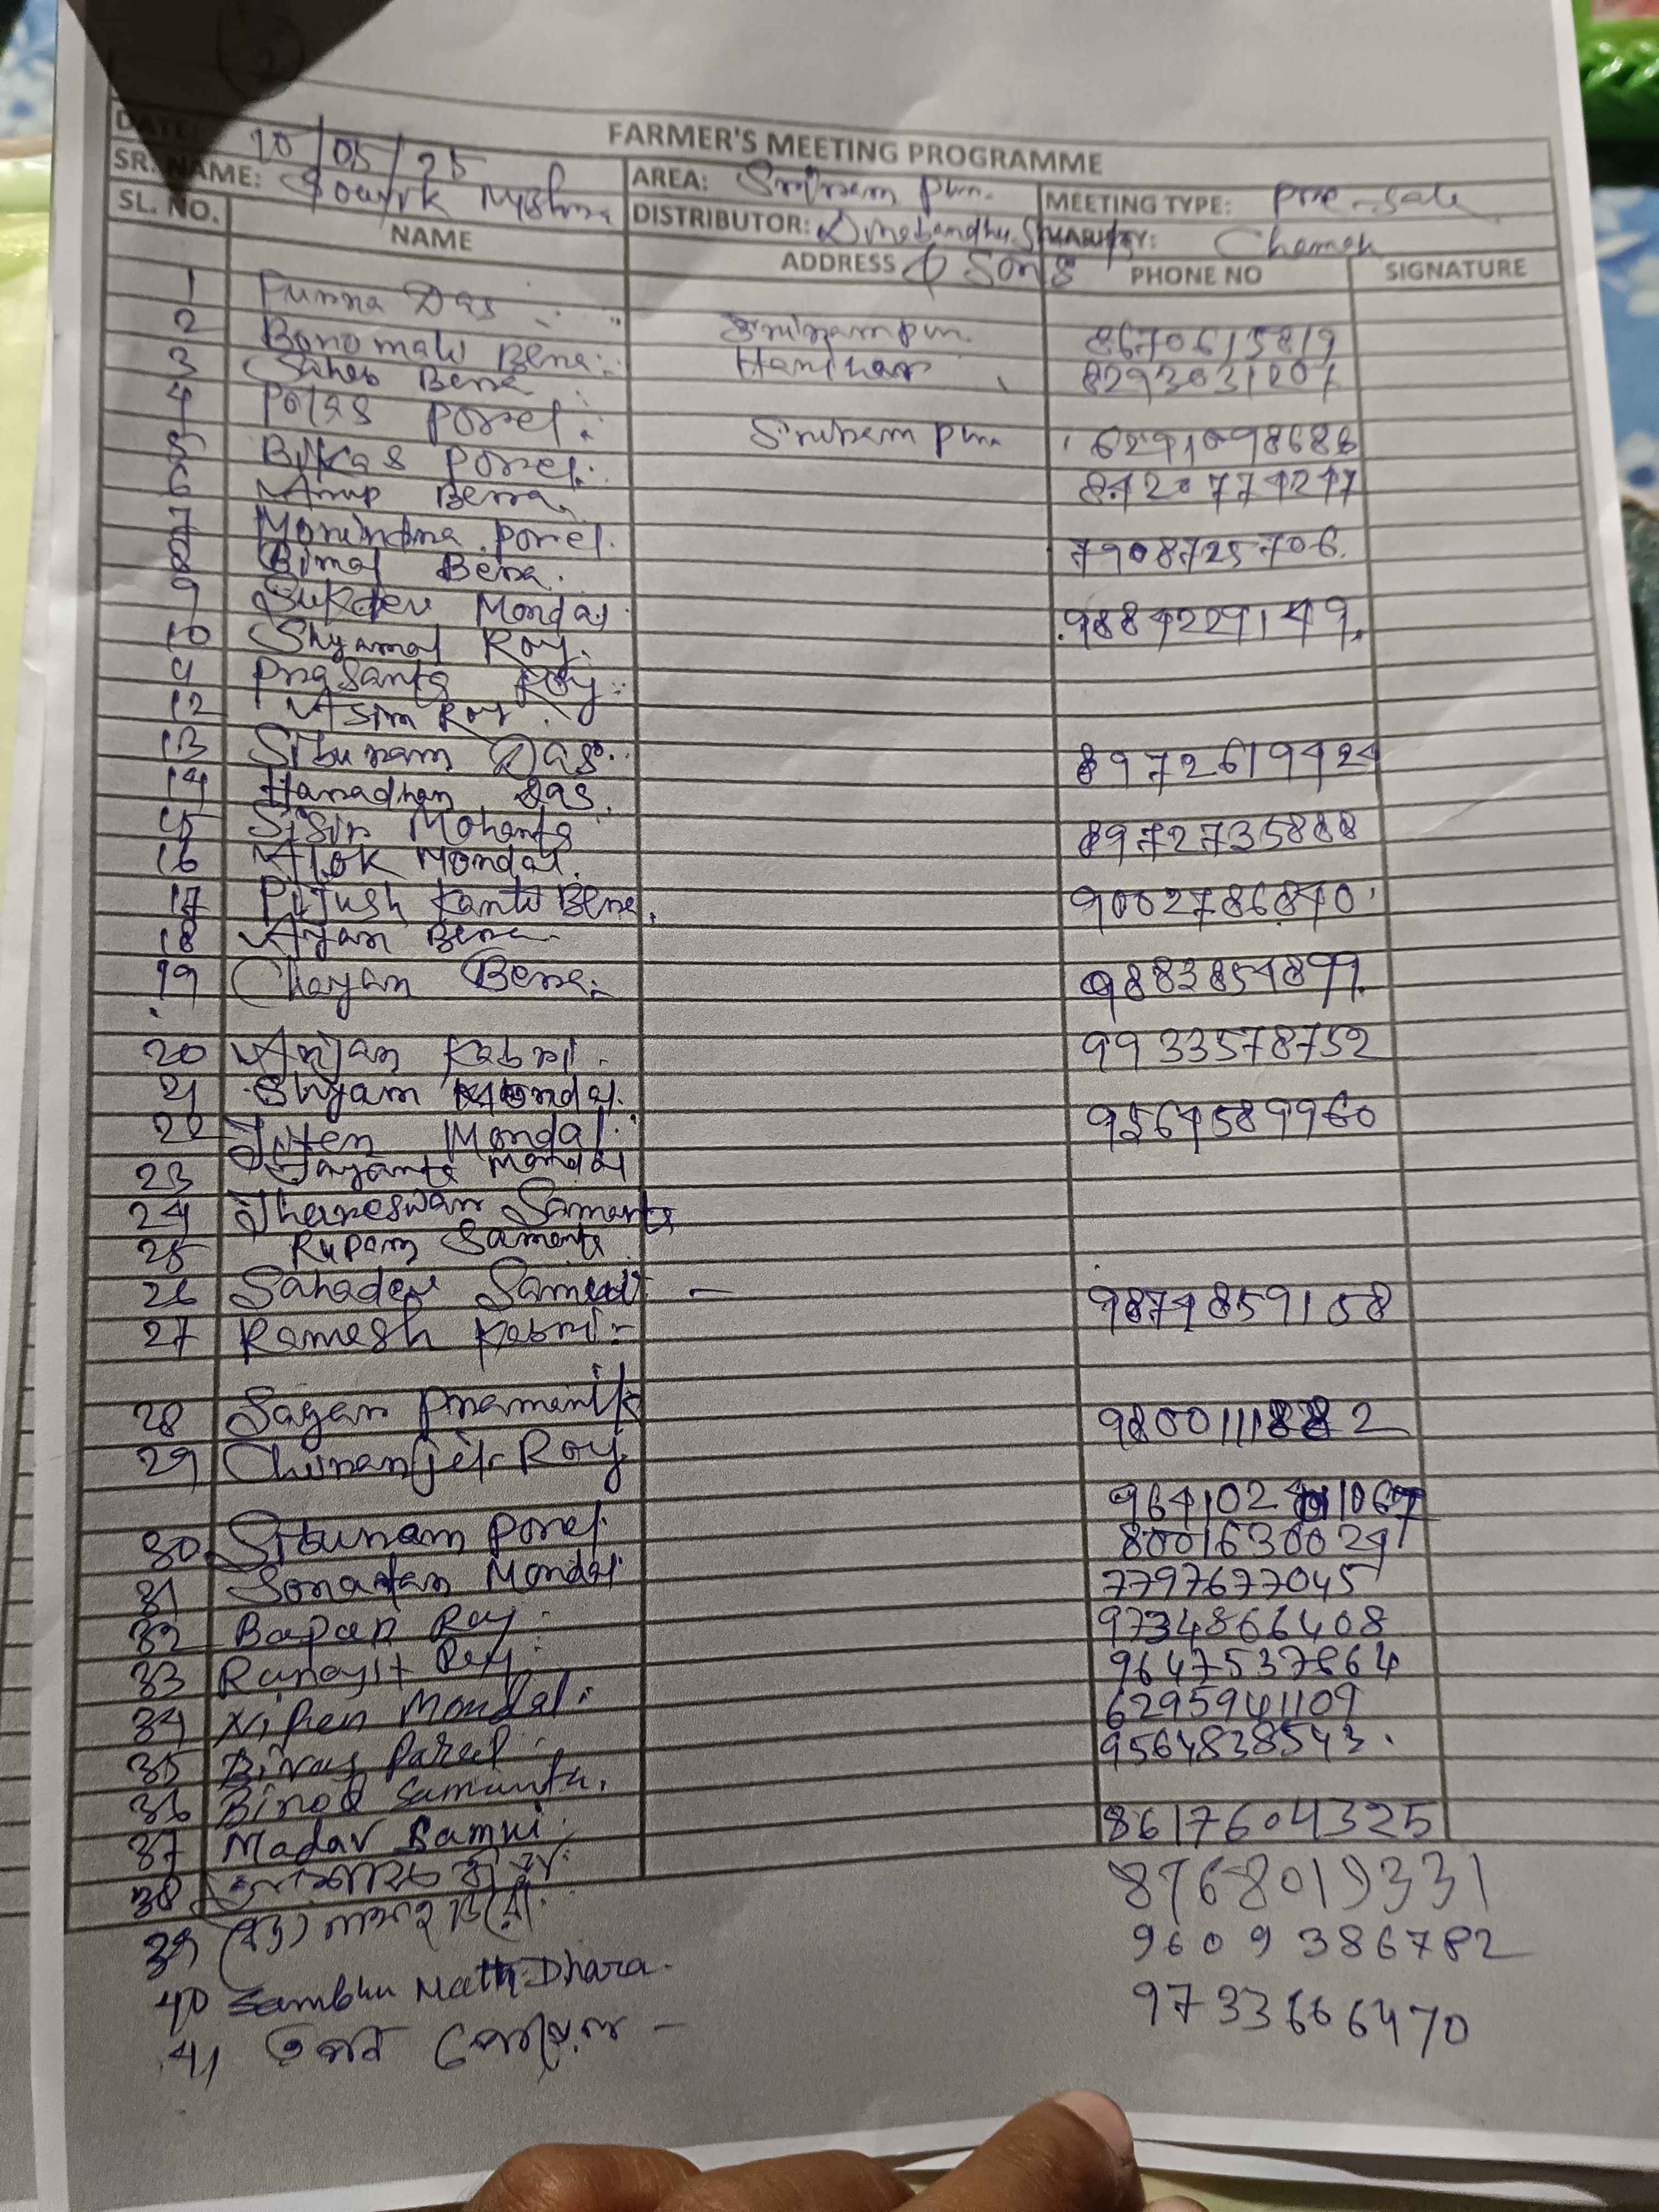 2
FARMER'S MEETING PROGRAMME
DATE: 10/05/25
SR. NAME: Souvik Mishra AREA: Srirampur. MEETING TYPE: Pre-Sale
DISTRIBUTOR: Dinabandhu & Sons VARIETY: Chamak
SL. NO. NAME ADDRESS PHONE NO SIGNATURE
1 Purna Das Srirampur. 8670615819
2 Bonomali Bera Harihar 8293031207
3 Saheb Bera
4 Polas Porel. Srirampur 6291098686
5 Bikas Porel. 8420774247
6 Arup Berra
7 Monindra Porel. 7908725706.
8 Bimal Bera.
9 Sukdev Mondal 9884229149.
10 Shyamal Roy.
11 Prasanta Roy
12 Asim Roy.
13 Siburam Das. 8972619424
14 Haradhan Das.
15 Sisir Mohanta 8972735888
16 Alok Mondal.
17 Pijush Kanti Bera. 9002786840
18 Ayan Bera
19 Chayan Bera. 9883854899.
20 Anjan Kabri. 9933578752
21 Shyam Mondal.
22 Jiten Mondal. 9564589960
23 Jayanta Mondal
24 Jhareswar Samanta
25 Rupam Samanta
26 Sahadev Samanta — 9874859158
27 Ramesh Kabri
28 Sagar Pramanik 9800111882
29 Chiranjit Roy.
964102
30 Siburam Porel. 8001630029
31 Sonatan Mondal 7797677045
32 Bapan Roy. 9734866408
33 Ranajit Roy. 9647537864
34 Nipen Mondal. 6295941109
35 Parel. 9564838543.
36 Binod Samanta.
37 Madav Samui. 8617604325
38 8768019331
39 9609386782
40 Sambhu Nath Dhara. 9733666470
41 তপন পোড়েল —